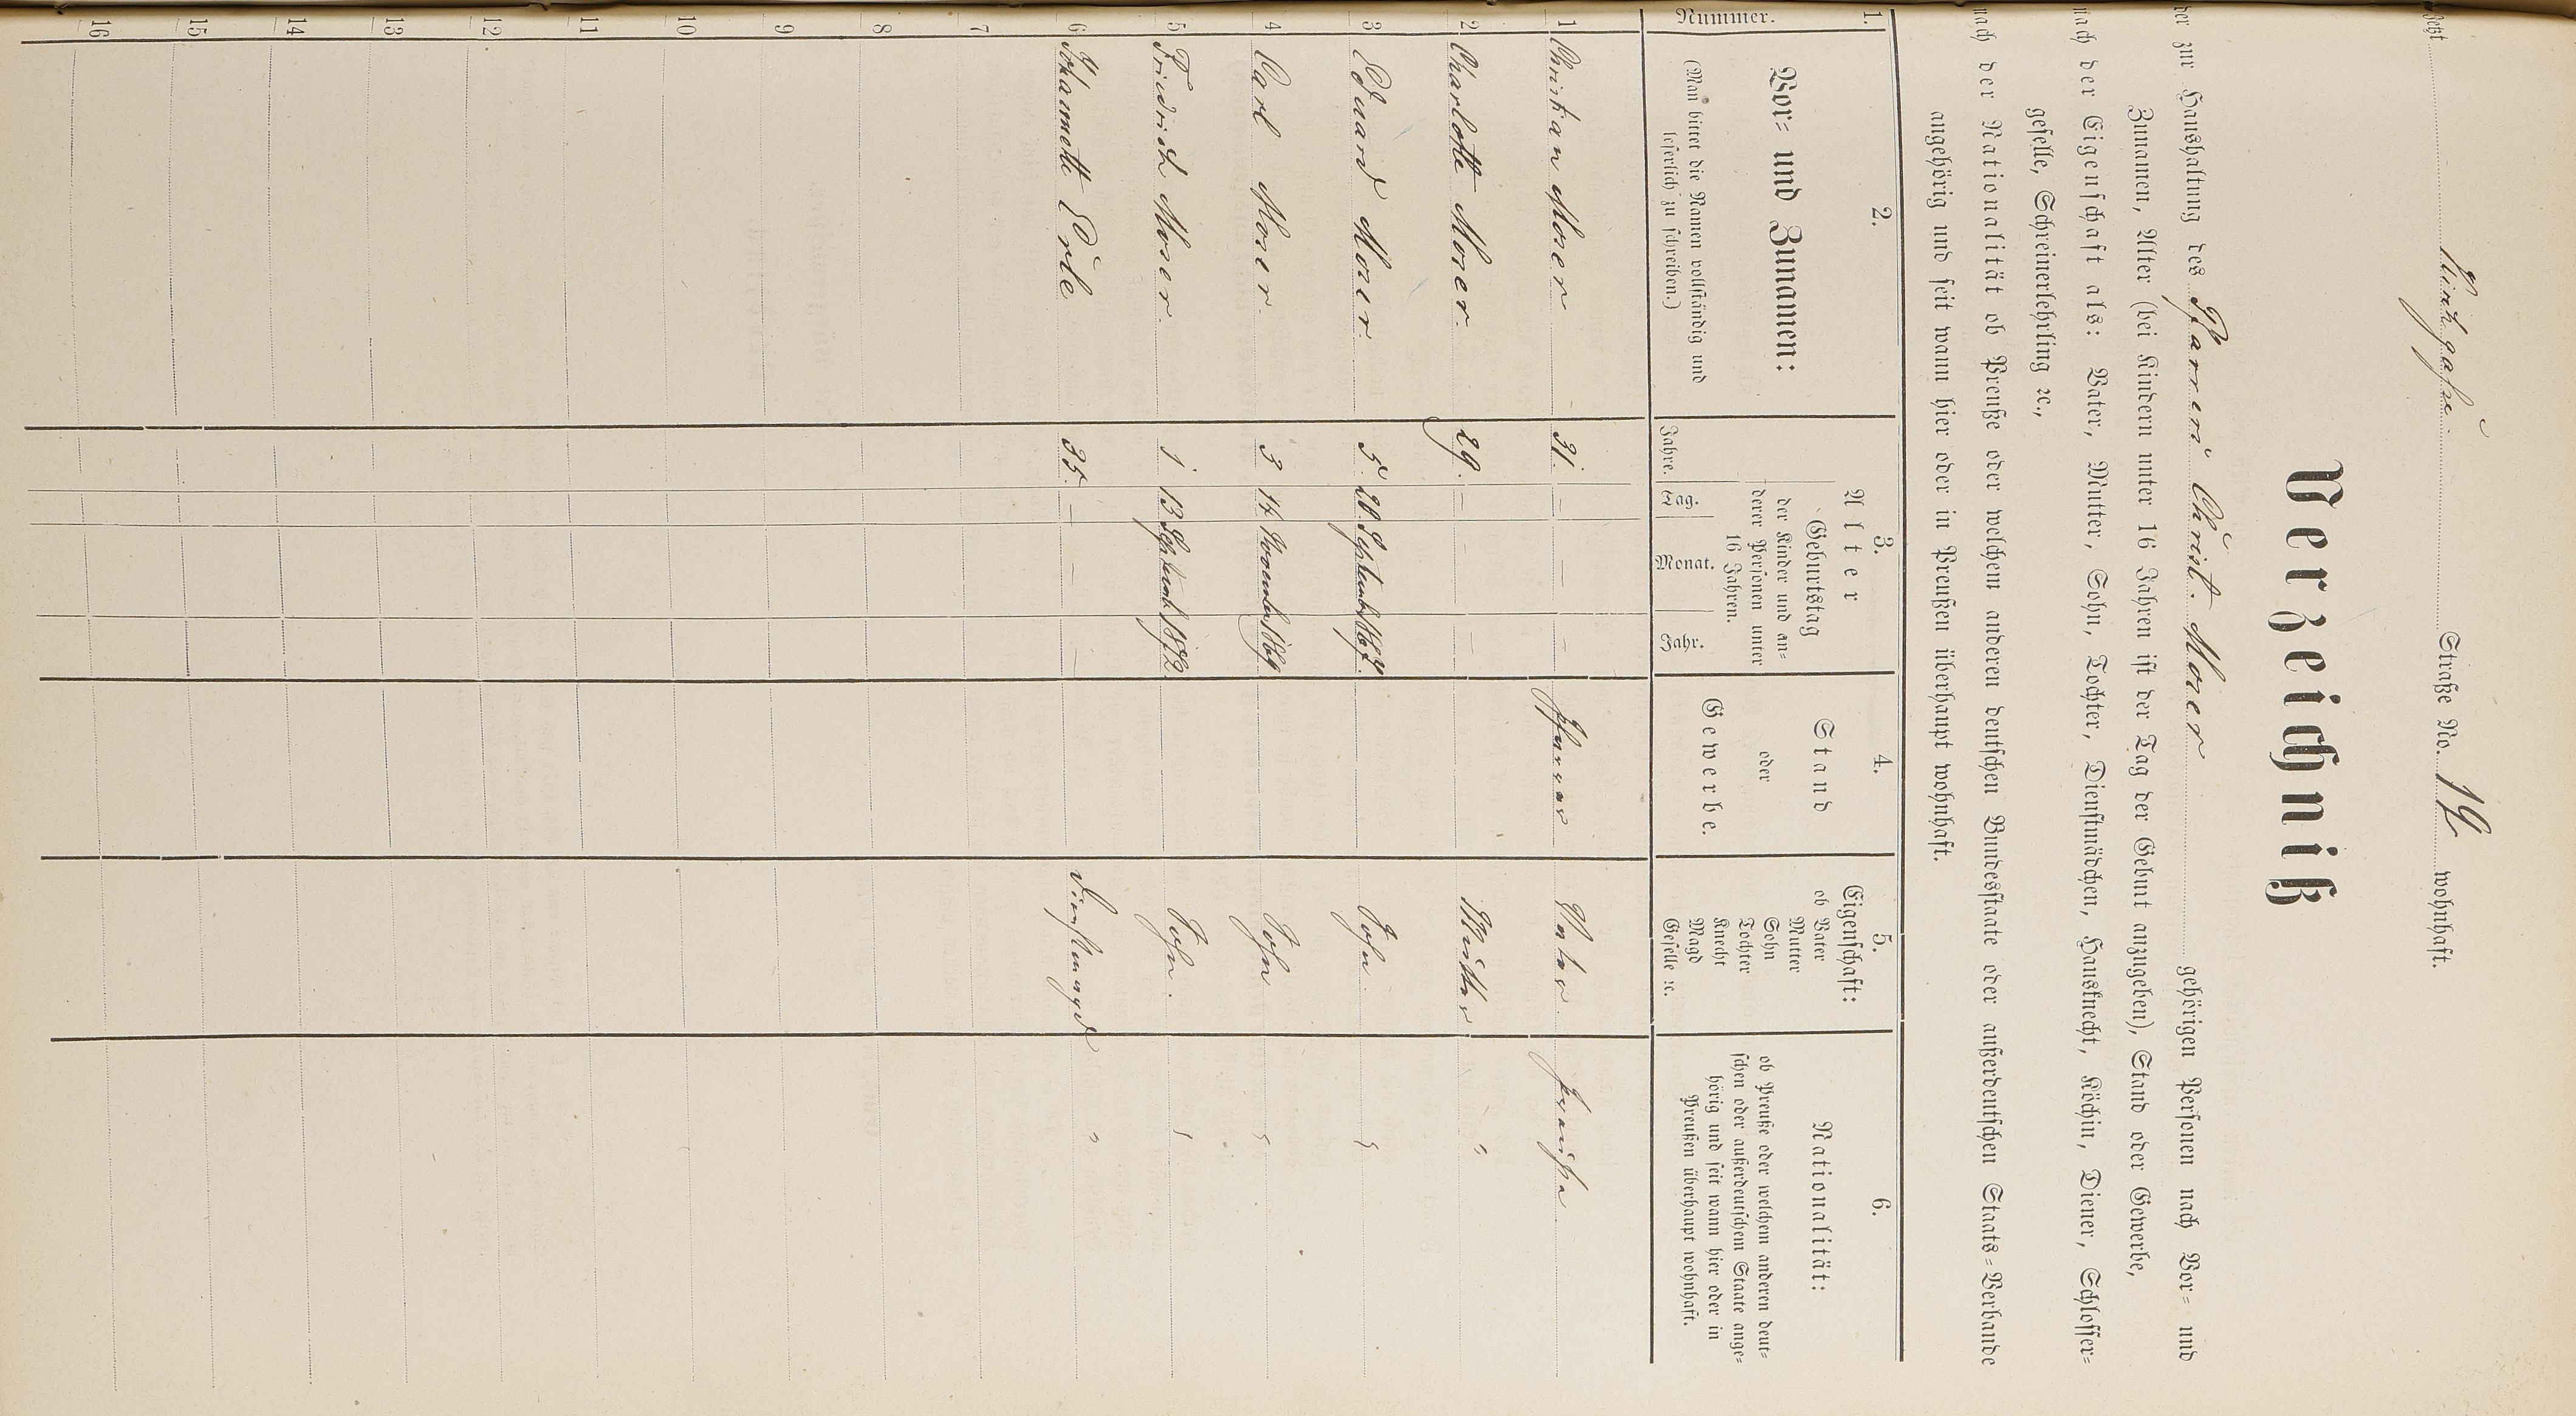 jetzt Kirchgasse Straße No. 12 wohnhaft.
Verzeichniß
der zur Haushaltung des Pfarrer Christ. Moser gehörigen Personen nach Vor- und
Zunamen, Alter (bei Kindern unter 16 Jahren ist der Tag der Geburt anzugeben), Stand oder Gewerbe,
nach der Eigenschaft als: Vater, Mutter, Sohn, Tochter, Dienstmädchen, Hausknecht, Köchin, Diener, Schlosser-
geselle, Schreinerlehrling ꝛc.,
nach der Nationalität ob Preuße oder welchem anderen deutschen Bundesstaate oder außerdeutschen Staats-Verbande
angehörig und seit wann hier oder in Preußen überhaupt wohnhaft.
1. 2. 3. 4. 5. 6.
Nummer.
Vor- und Zunamen:
(Man bittet die Namen vollständig und
leserlich zu schreiben.)
Alter
Geburtstag
der Kinder und an-
derer Personen unter
16 Jahren.
Jahre. Tag. Monat. Jahr.
Stand
oder
Gewerbe.
Eigenschaft:
ob Vater
Mutter
Sohn
Tochter
Knecht
Magd
Geselle ꝛc.
Nationalität:
ob Preuße oder welchem anderen deut-
schen oder außerdeutschem Staate ange-
hörig und seit wann hier oder in
Preußen überhaupt wohnhaft.
1 Christian Moser 31. – – – Pfarrer Vater. Preuße
2 Charlotte Moser. 29. – – – Mutter "
3 Eduard Moser. 5 20. September 1867. Sohn "
4 Carl Moser. 3 14 November 1869 Sohn "
5 Friedrich Moser. 1 13 September 1872. Sohn. "
6 Johannette Erle 35. – – – Dienstmagd "
7
8
9
10
11
12
13
14
15
16